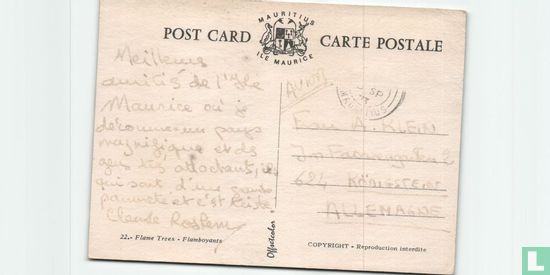 MAURITIUS
POST CARD CARTE POSTALE
ILE MAURICE
Meilleures
amitiés de l'Ile
Maurice où je
découvre un pays
magnifique et des
gens très attachants,
qui sont d'une grande
pauvreté et c'est triste
Claude
AVION
MAURITIUS
A. KLEIN
Im 2
624 KÖNIGSTEIN
ALLEMAGNE
22.- Flame Trees - Flamboyants
Offsetcolor
COPYRIGHT - Reproduction interdite
catawiki